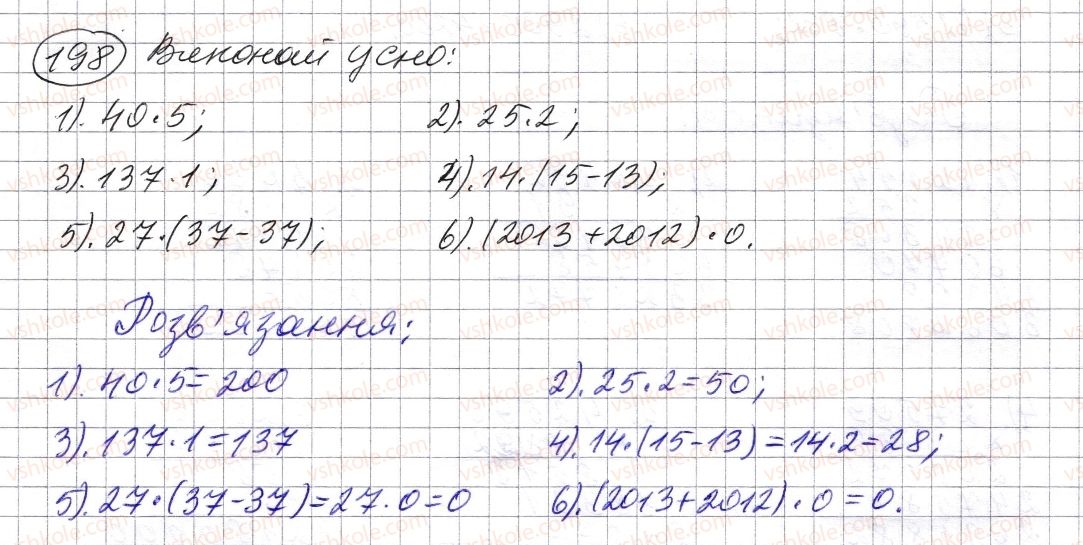 198 Виконай усно:
1). 40·5; 2). 25·2;
3). 137·1; 4). 14·(15-13);
5). 27·(37-37); 6). (2013+2012)·0.
Розв'язання:
1). 40·5=200 2). 25·2=50;
3). 137·1=137 4). 14·(15-13)=14·2=28;
5). 27·(37-37)=27·0=0 6). (2013+2012)·0=0.